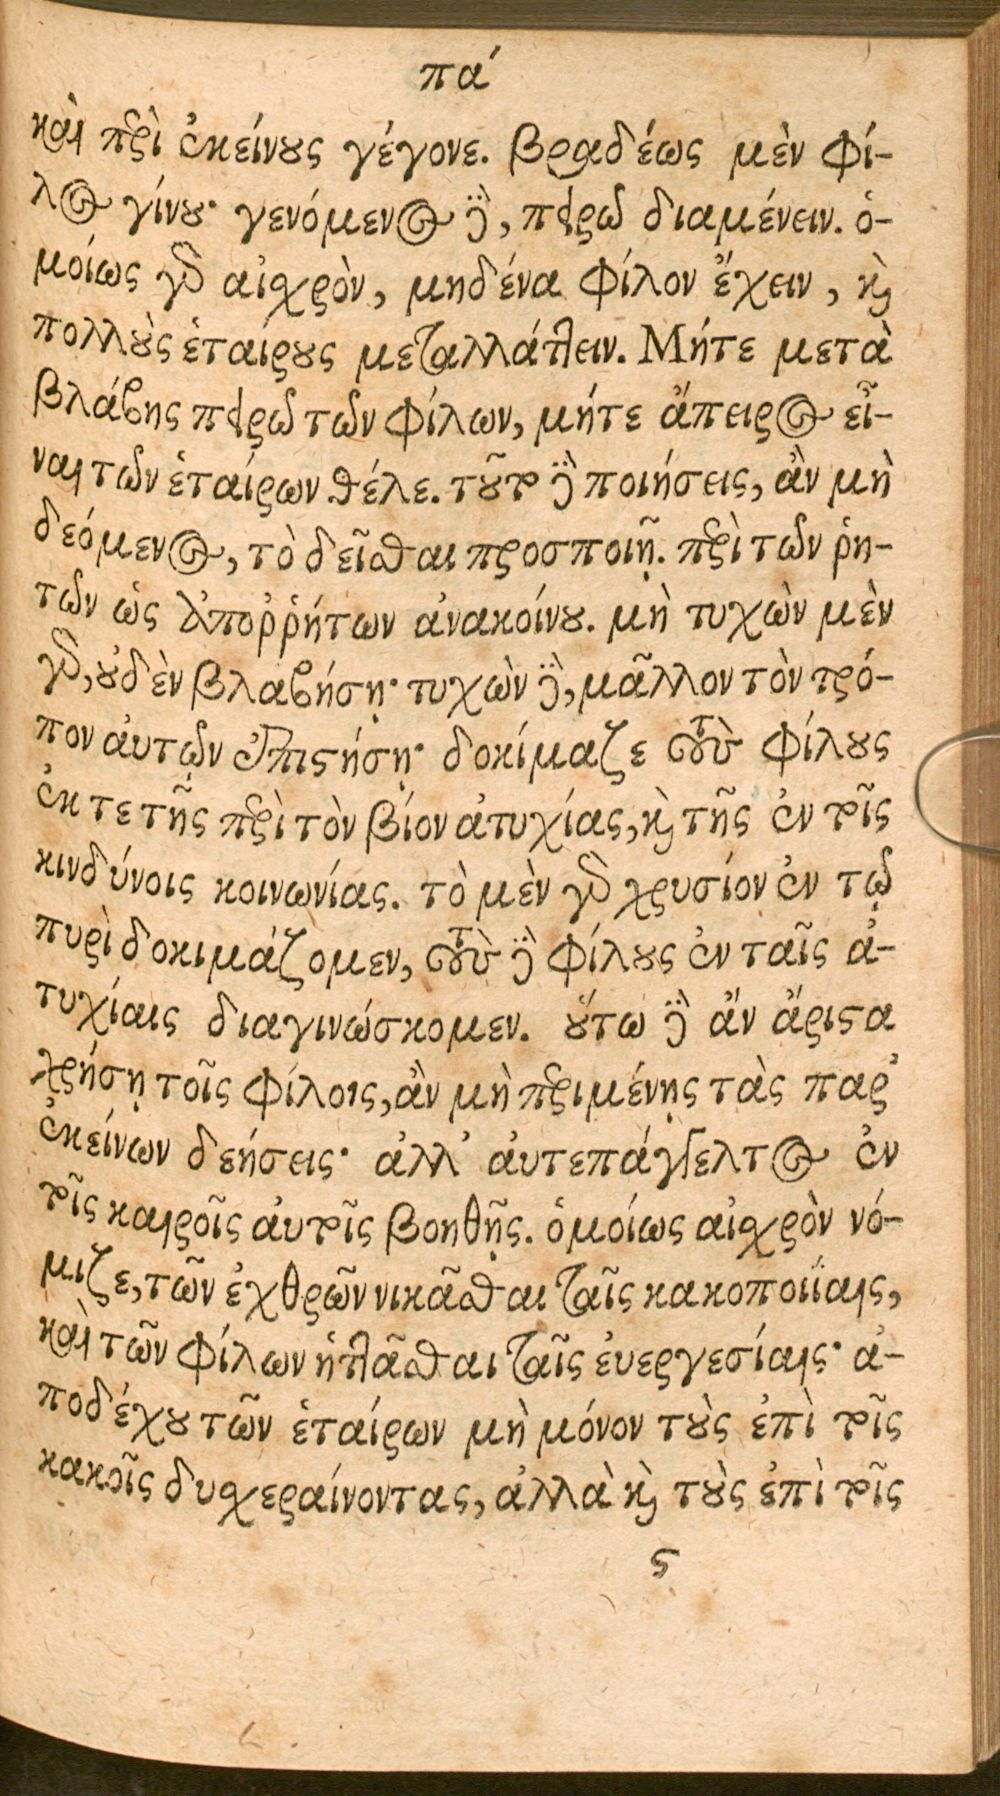 πα´
καὶ περὶ ἐκείνους γέγονε. βραδέως μὲν φί-
λος γίνου· γενόμενος δὲ, πειρῶ διαμένειν. ὁ-
μοίως γὰρ αἰσχρὸν, μηδένα φίλον ἔχειν, καὶ
πολλοὺς ἑταίρους μεταλλάττειν. Μήτε μετὰ
βλάβης πειρῶ τῶν φίλων, μήτε ἄπειρος εἶ-
ναι τῶν ἑταίρων θέλε. τοῦτο δὲ ποιήσεις, ἂν μὴ
δεόμενος, τὸ δεῖσθαι προσποιῇ. περὶ τῶν ῥη-
τῶν ὡς ἀποῤῥήτων ἀνακοίνου. μὴ τυχὼν μὲν
γὰρ, οὐδὲν βλαβήσῃ· τυχὼν δὲ, μᾶλλον τὸν τρό-
πον ἀυτῶν ἐπιστήσῃ· δοκίμαζε τοὺς φίλους
ἐκ τε τῆς περὶ τὸν βίον ἀτυχίας, καὶ τῆς ἐν τοῖς
κινδύνοις κοινωνίας. τὸ μὲν γὰρ χρυσίον ἐν τῷ
πυρὶ δοκιμάζομεν, τοὺς δὲ φίλους ἐν ταῖς ἀ-
τυχίαις διαγινώσκομεν. οὕτω δὲ ἂν ἄριστα
χρήσῃ τοῖς φίλοις, ἂν μὴ περιμένῃς τὰς παρ᾽
ἐκείνων δεήσεις· ἀλλ᾽ ἀυτεπάγγελτος ἐν
τοῖς καιροῖς ἀυτοῖς βοηθῇς. ὁμοίως αἰσχρὸν νό-
μιζε, τῶν ἐχθρῶν νικᾶσθαι ταῖς κακοποιΐαις,
καὶ τῶν φίλων ἡττᾶσθαι ταῖς ἐυεργεσίαις· ἀ-
ποδέχου τῶν ἑταίρων μὴ μόνον τοὺς ἐπὶ τοῖς
κακοῖς δυσχεραίνοντας, ἀλλὰ καὶ τοὺς ἐπὶ τοῖς
ς